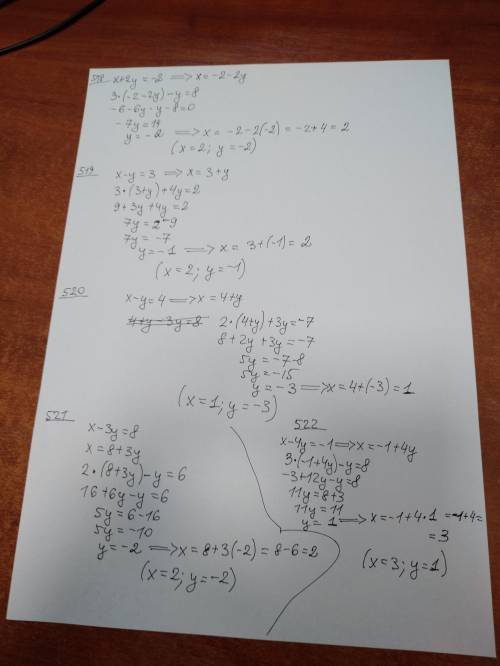 518 x+2y=-2 ⟹ x=-2-2y
3·(-2-2y)-y=8
-6-6y-y-8=0
-7y=14
y=-2 ⟹ x=-2-2(-2)=-2+4=2
(x=2; y=-2)
519 x-y=3 ⟹ x=3+y
3·(3+y)+4y=2
9+3y+4y=2
7y=2-9
7y=-7
y=-1 ⟹ x=3+(-1)=2
(x=2; y=-1)
520 x-y=4 ⟹ x=4+y
4+y-3y=8 2·(4+y)+3y=-7
8+2y+3y=-7
5y=-7-8
5y=-15
y=-3 ⟹ x=4+(-3)=1
(x=1; y=-3)
521
x-3y=8
x=8+3y
2·(8+3y)-y=6
16+6y-y=6
5y=6-16
5y=-10
y=-2 ⟹ x=8+3(-2)=8-6=2
(x=2; y=-2)
522
x-4y=-1 ⟹ x=-1+4y
3·(-1+4y)-y=8
-3+12y-y=8
11y=8+3
11y=11
y=1 ⟹ x=-1+4·1=-1+4=
=3
(x=3; y=1)